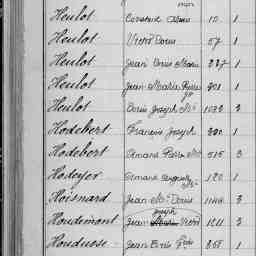 Heulot Constant Marie 10 1
Heulot Victor Louis 57 1
Heulot Jean Louis Marie 327 1
Heulot Jean Marie Pierre 701 1
Heulot Louis Joseph Mie 1073 3
Hodebert Francis Joseph 320 1
Hodebert Armand Pierre Mie 515 3
Hodeyer Armand 120 1
Hoisnard Jean Mie Louis 1144 3
Joseph
Houdemont Jean Victor 1211 3
Houdusse Jean Louis 258 1